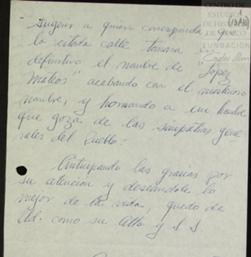 sugiera a quien corresponda que
la citada calle tomara
definitivo el nombre de
"López
Mateos" acabando con el misterioso
nombre, y honrando a un hombre
que goza de las simpatías gene
rales del Pueblo.
Anticipando las gracias por
su atención y deseandole lo
mejor de la vida, quedo de
Ud. como su Atto y S S